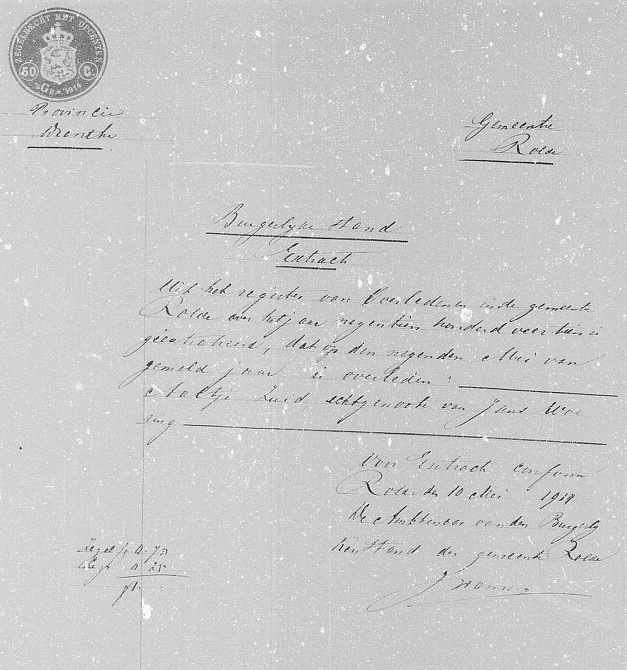 ZEGELRECHT MET OPCENTEN
50 C.
1914
Provincie
Drenthe
Gemeente
Rolde
Burgelijke Stand
Extract
Uit het register van Overledenen in de gemeente
Rolde over het jaar negentien honderd veertien is
geëxtraheerd, dat op den negenden Mei van
gemeld jaar is overleden:
Zuid, echtgenoote van Jans Woe
ring
Voor Extract conform
Rolde den 10 Mei 1914
De Ambtenaar van den Burgerly
ken Stand der gemeente Rolde
Zegel
25